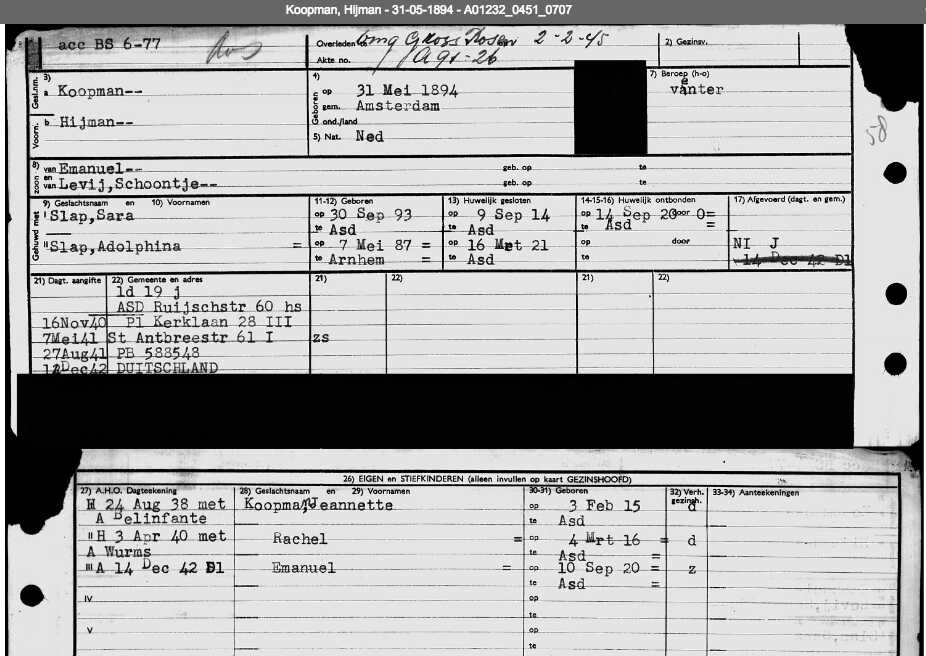 Koopman, Hijman - 31-05-1894 - A01232_0451_0707
acc BS 6-77
Overleden te Gross Rosen 2-2-45
Akte no. A 91-26
2) Gezinsv.
Gesl.nm. 3) a Koopman--
Voorn. b Hijman--
4) Geboren op 31 Mei 1894
gem. Amsterdam
ond./land
5) Nat. Ned
7) Beroep (h-o)
venter
58
8) zoon van Emanuel-- geb. op te
en van Levij,Schoontje-- geb. op te
9) Geslachtsnaam en 10) Voornamen
Gehuwd met
I Slap,Sara
II Slap,Adolphina =
11-12) Geboren
op 30 Sep 93
te Asd
op 7 Mei 87 =
te Arnhem =
13) Huwelijk gesloten
op 9 Sep 14
te Asd
op 16 Mrt 21
te Asd
14-15-16) Huwelijk ontbonden
op 14 Sep 20 door O=
te Asd =
op door
te
17) Afgevoerd (dagt. en gem.)
NI J
14 Dec 42 Dl
21) Dagt. aangifte 22) Gemeente en adres 21) 22) 21) 22)
ld 19 j
ASD Ruijschstr 60 hs
16Nov40 Pl Kerklaan 28 III
7Mei41 St Antbreestr 61 I zs
27Aug41 PB 588548
Dec42 DUITSCHLAND
26) EIGEN en STIEFKINDEREN (alleen invullen op kaart GEZINSHOOFD)
27) A.H.O. Dagteekening 28) Geslachtsnaam en 29) Voornamen 30-31) Geboren 32) Verh. gezinsh. 33-34) Aanteekeningen
H 24 Aug 38 met Koopman,Jeannette op 3 Feb 15 d
A Delinfante te Asd
II H 3 Apr 40 met Rachel = op 4 Mrt 16 = d
A Wurms te Asd =
III A 14 Dec 42 Dl Emanuel = op 10 Sep 20 = z
te Asd =
IV op
te
V op
te